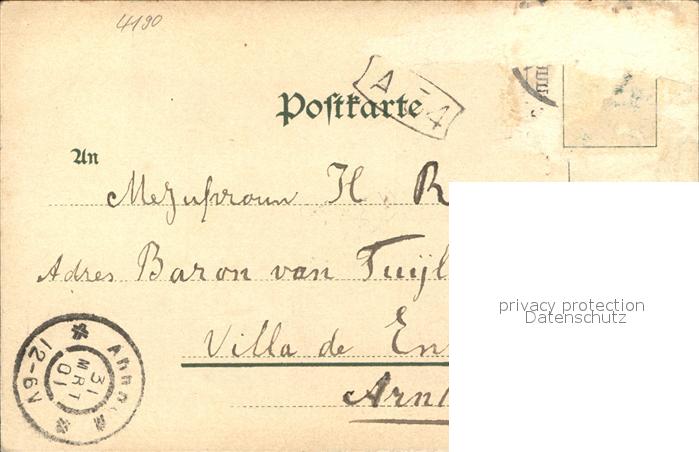 4190
A 4
Postkarte
An
Mejufvrouw H. R
Adres Baron van Tuijl
Villa de En
Arn
12-6N
31
MRT
01
privacy protection
Datenschutz